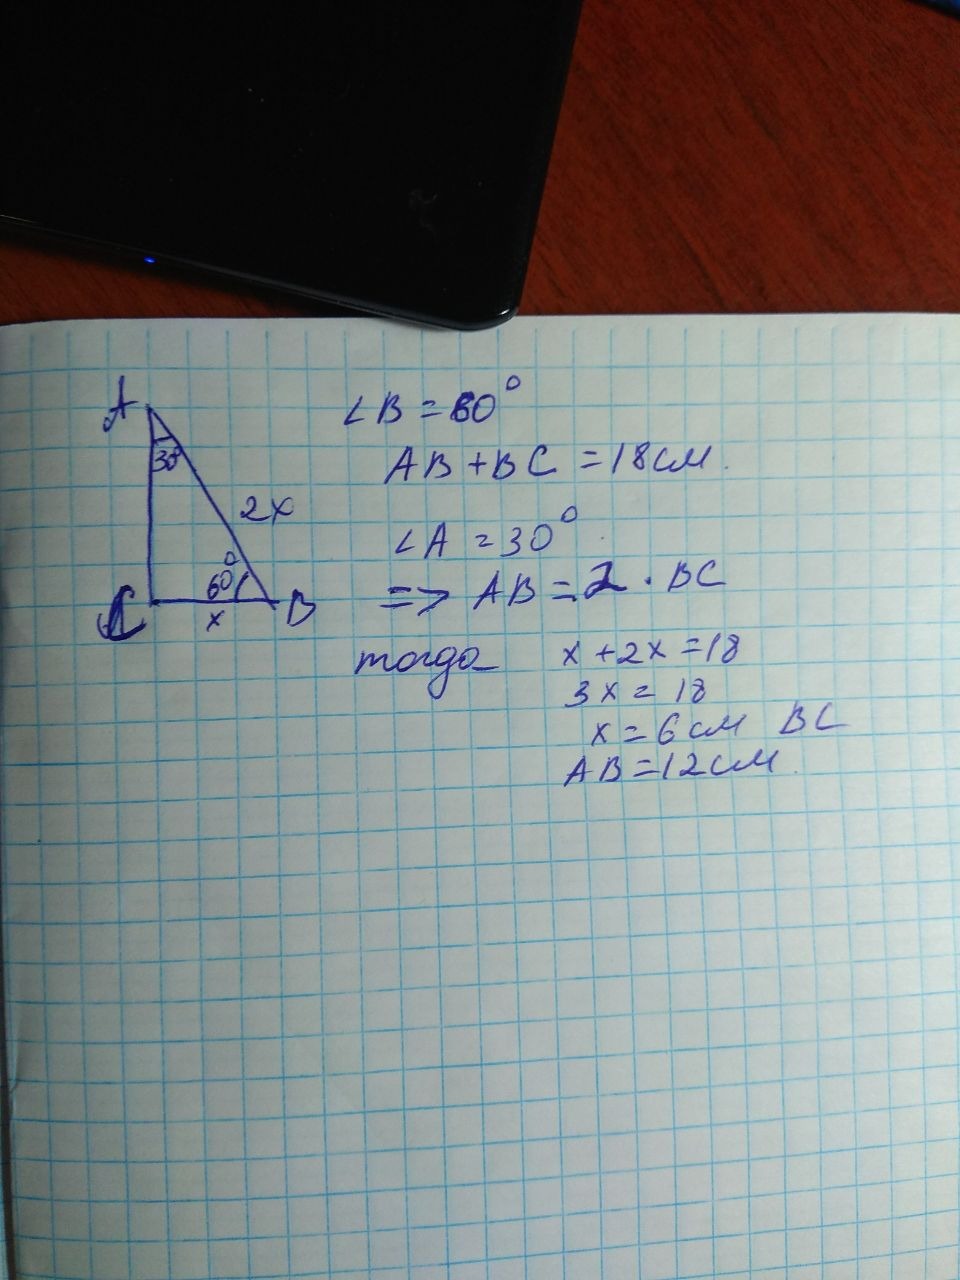 A
30°
2x
60°
C
x
B
∠B = 60°
AB + BC = 18 см.
∠A = 30°
=> AB = 2 · BC
тогда x + 2x = 18
3x = 18
x = 6 см BC
AB = 12 см.